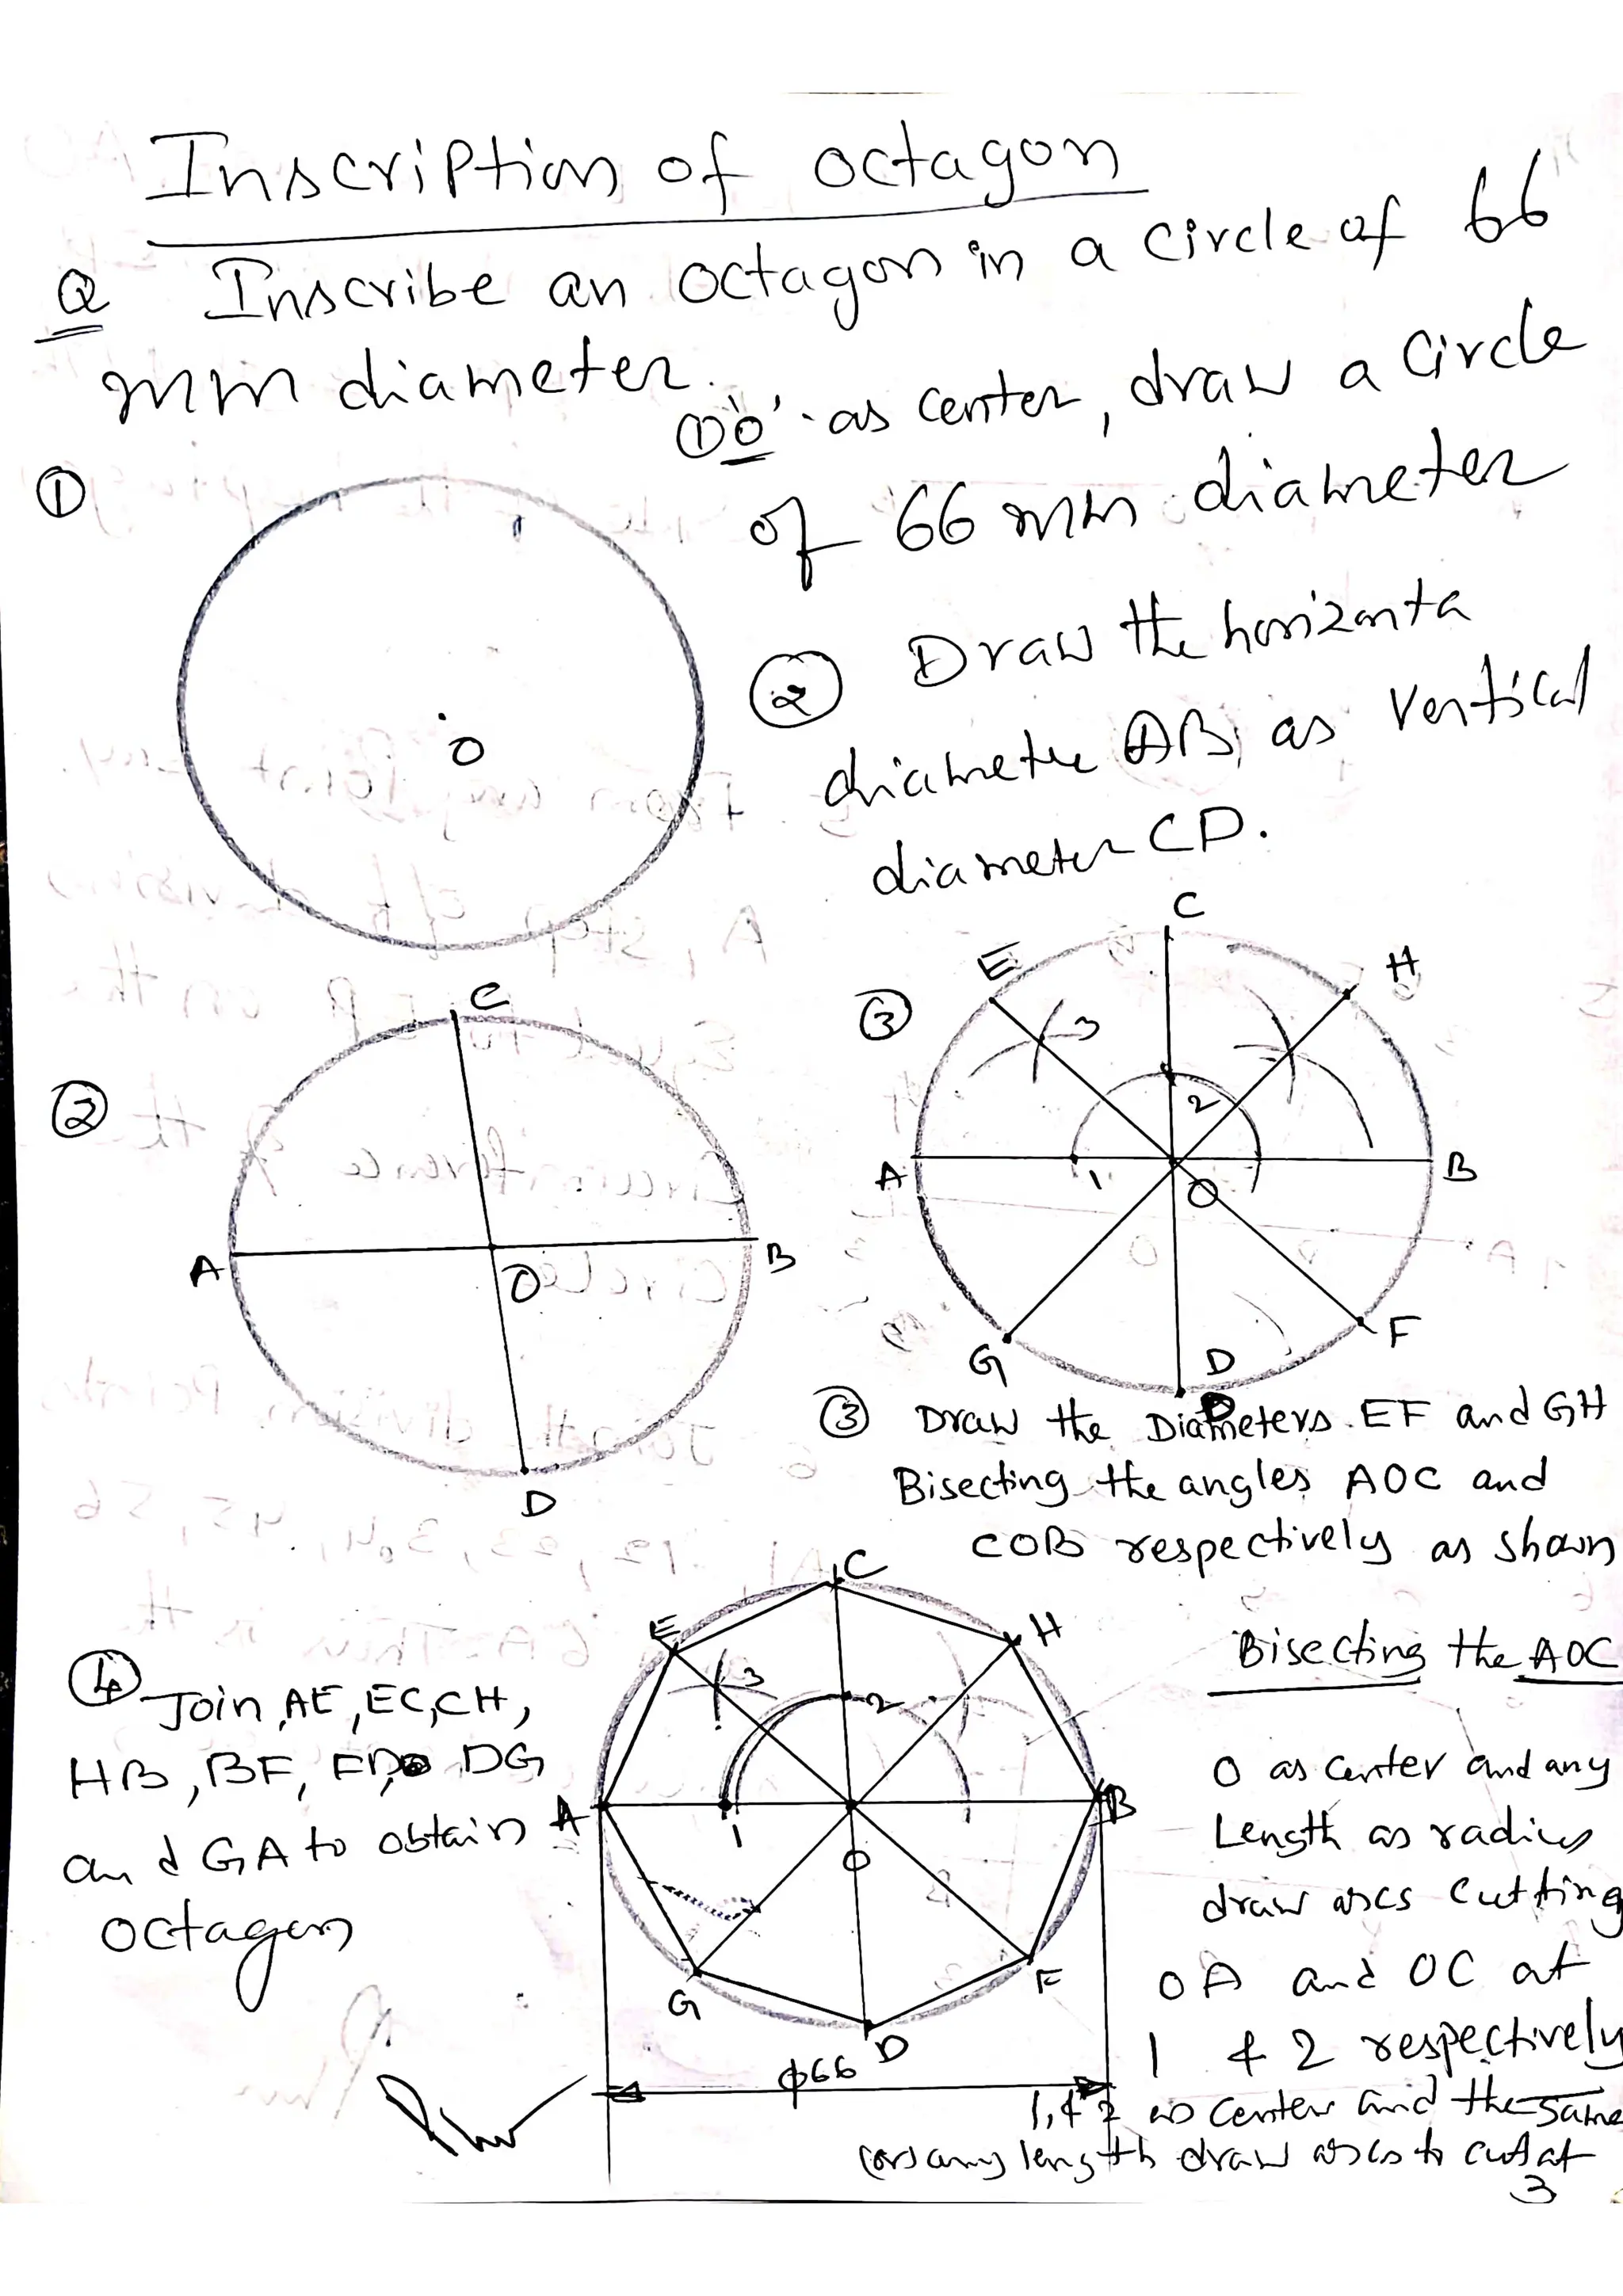 Inscription of octagon
Q Inscribe an octagon in a circle of 66
mm diameter.
① 'O' as center, draw a circle
of 66 mm diameter
①
O
② Draw the horizonta
diameter AB, as vertical
diameter CD.
②
C
A
O
B
D
③
C
E
H
3
2
A
1
O
B
G
D
F
③ Draw the Diameters EF and GH
Bisecting the angles AOC and
COB respectively as shown
④ Join AE, EC, CH,
HB, BF, FD, DG
and GA to obtain
octagon
C
E
H
3
2
A
1
O
B
G
D
F
ϕ66
Bisecting the AOC
O as center and any
Length as radius
draw arcs cutting
OA and OC at
1 & 2 respectively
1, & 2 as center and the same
(or) any length draw arcs to cut at
3